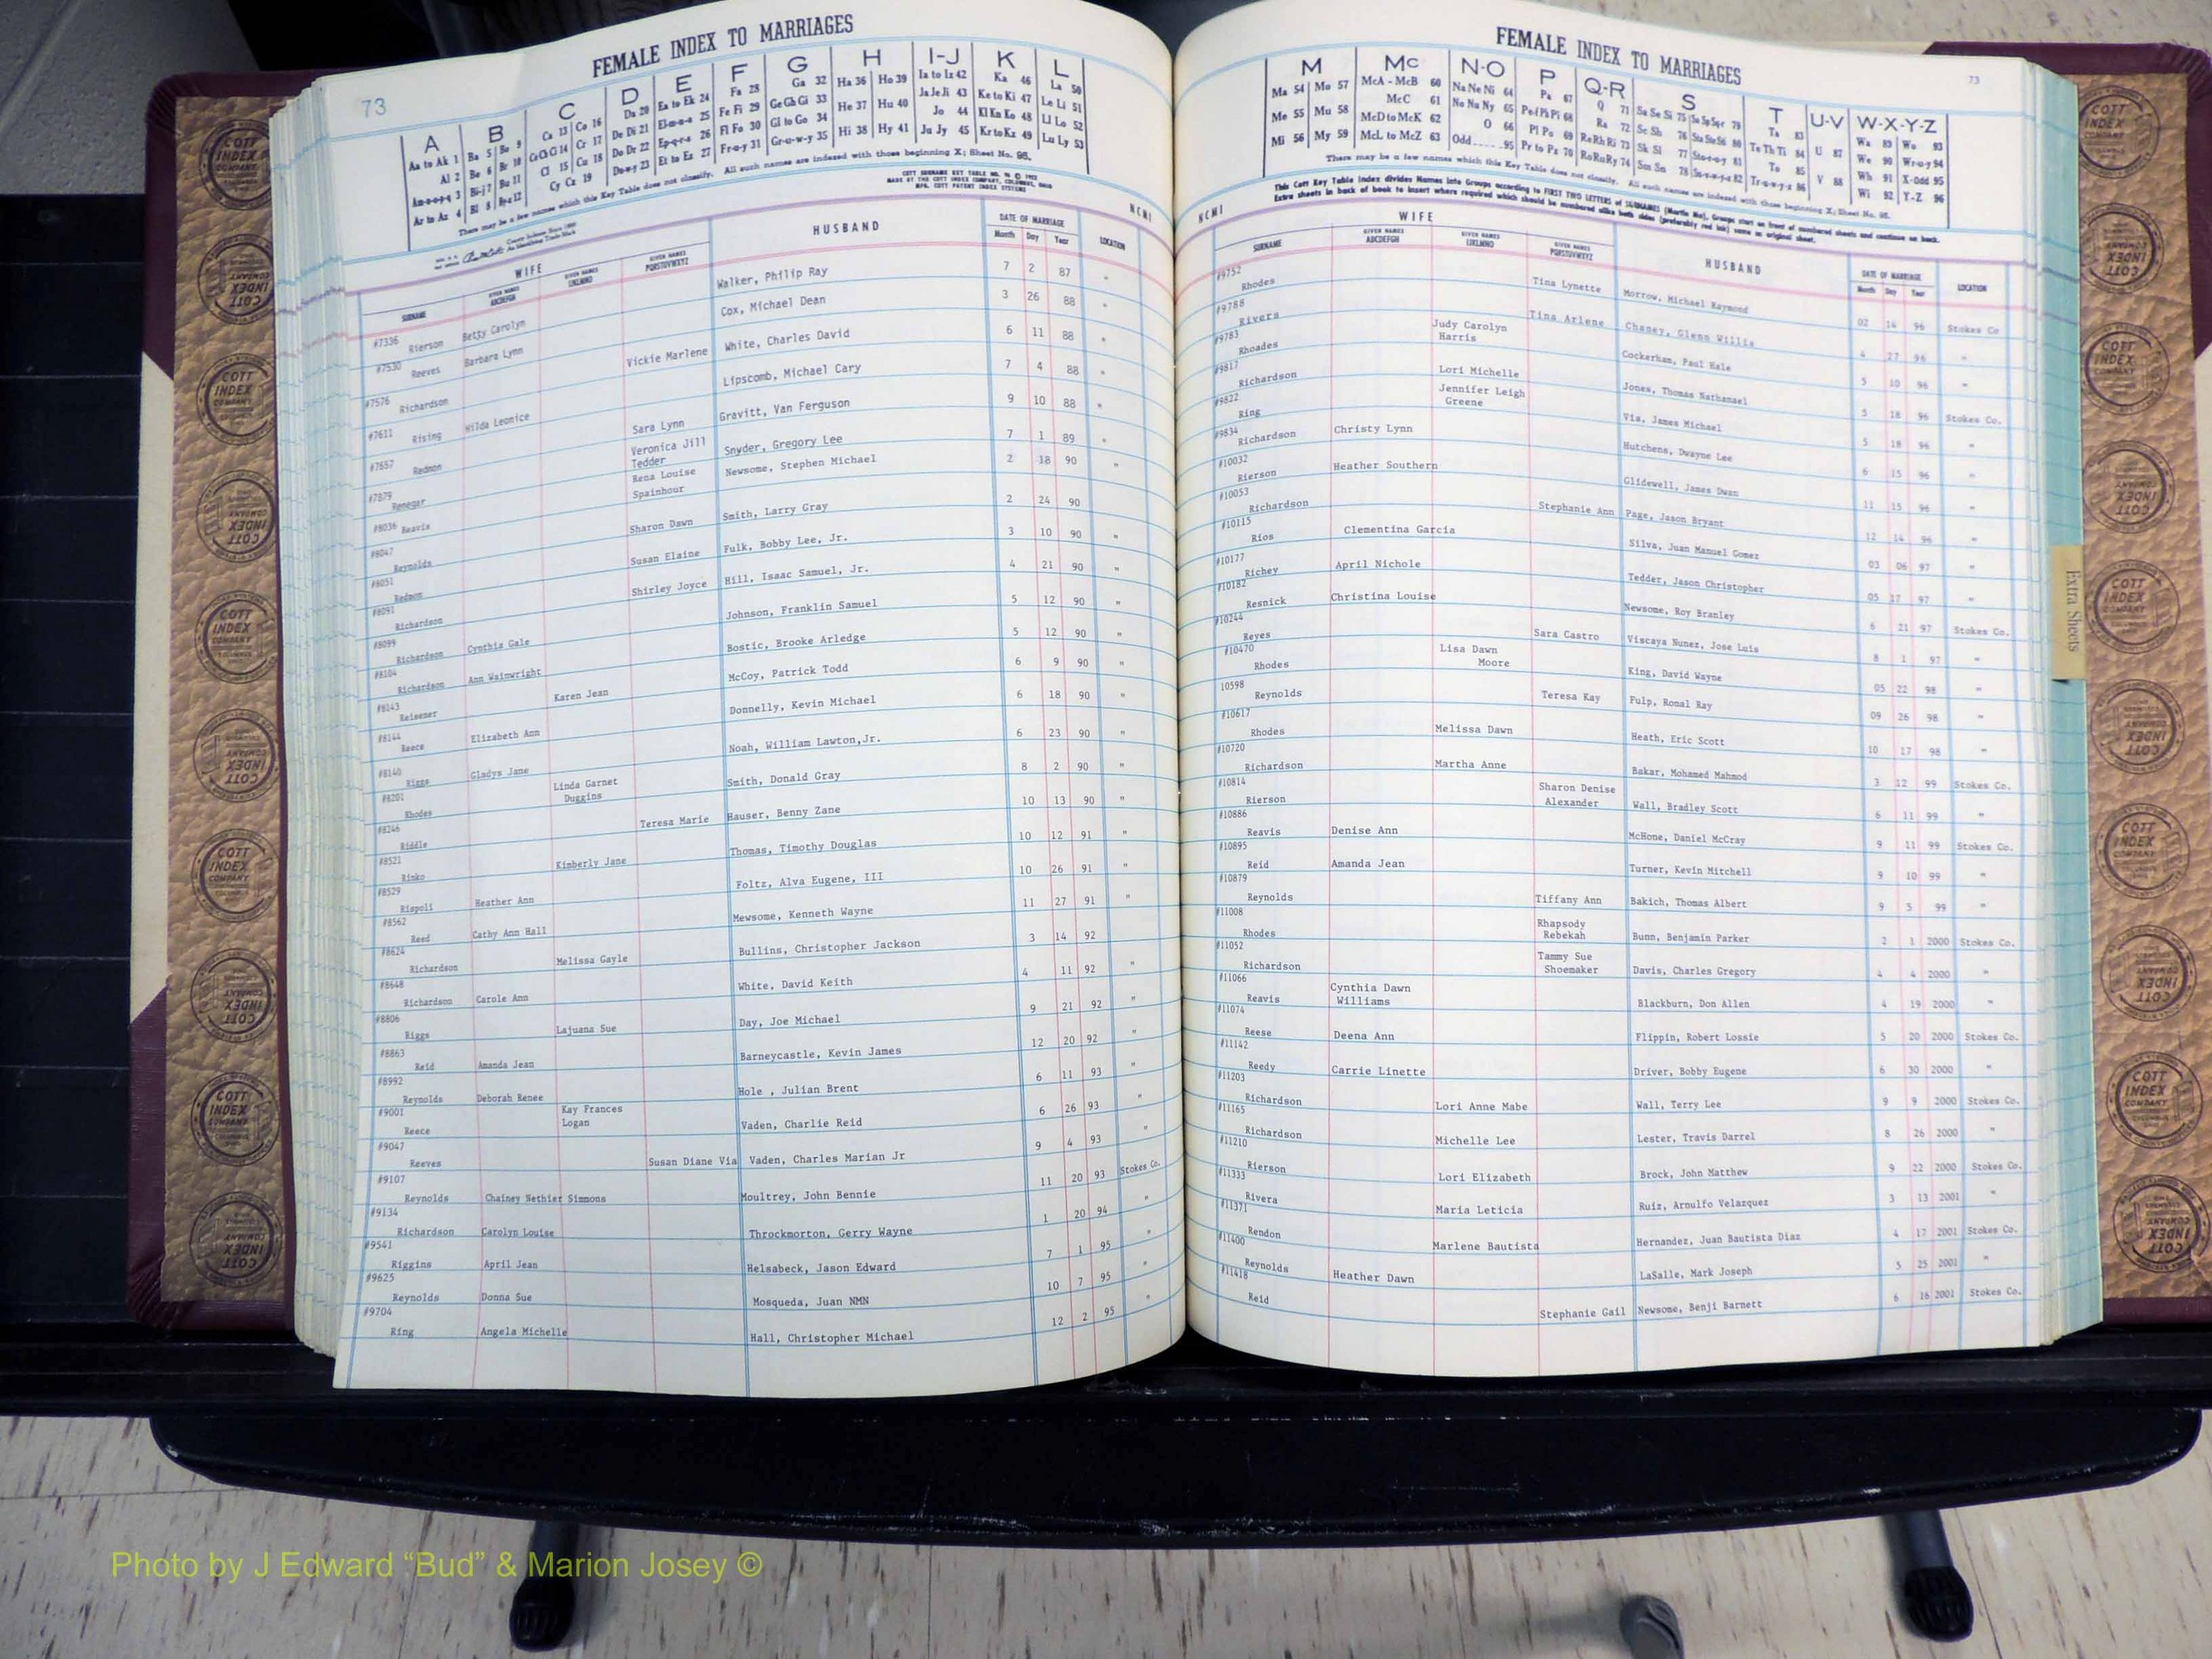 FEMALE INDEX TO MARRIAGES
73
A B C D E F G H I-J K L
Aa to Ak 1 Ba 5 Be 9 Ca 13 Co 16 Da 20 Ea to Ek 24 Fa 28 Ga 32 Ha 36 Ho 39 Ia to Iz 42 Ka 46 La 50
Al 2 Be 6 Br 10 Ce Ch Ci 14 Cr 17 De Di 21 El-m-n-o 25 Fe Fi 29 Ge Gh Gi 33 He 37 Hu 40 Ja Je Ji 43 Ke to Ki 47 Le Li 51
An-o-o-p-q 3 Bi-j 7 Bu 11 Cl 15 Cu 18 Do Dr 22 Ep-q-r-s 26 Fl Fo 30 Gl to Go 34 Jo 44 Kl Kn Ko 48 Ll Lo 52
Ar to Az 4 Bl 8 By-z 12 Cy Cz 19 Du-w-y 23 Et to Ez 27 Fr-u-y 31 Gr-u-w-y 35 Hi 38 Hy 41 Ju Jy 45 Kr to Kz 49 Lu Ly 53
There may be a few names which this Key Table does not classify. All such names are indexed with those beginning X; Sheet No. 95.
NCMI
WIFE HUSBAND DATE OF MARRIAGE LOCATION
SURNAME GIVEN NAMES ABCDEFGH GIVEN NAMES IJKLMNO GIVEN NAMES PQRSTUVWXYZ Month Day Year
#7336 Rierson Betty Carolyn Walker, Philip Ray 7 2 87 "
#7530 Reeves Barbara Lynn Cox, Michael Dean 3 26 88 "
#7576 Richardson Vickie Marlene White, Charles David 6 11 88 "
#7611 Rising Hilda Leonice Lipscomb, Michael Cary 7 4 88 "
#7657 Redmon Sara Lynn Gravitt, Van Ferguson 9 10 88 "
#7879 Renegar Veronica Jill Tedder Snyder, Gregory Lee 7 1 89 "
#8036 Reavis Rena Louise Spainhour Newsome, Stephen Michael 2 18 90 "
#8047 Reynolds Sharon Dawn Smith, Larry Gray 2 24 90
#8051 Redmon Susan Elaine Fulk, Bobby Lee, Jr. 3 10 90 "
#8091 Richardson Shirley Joyce Hill, Isaac Samuel, Jr. 4 21 90 "
#8099 Richardson Cynthia Gale Johnson, Franklin Samuel 5 12 90 "
#8104 Richardson Ann Wainwright Bostic, Brooke Arledge 5 12 90 "
#8143 Reisener Karen Jean McCoy, Patrick Todd 6 9 90 "
#8144 Reece Elizabeth Ann Donnelly, Kevin Michael 6 18 90 "
#8140 Riggs Gladys Jane Noah, William Lawton,Jr. 6 23 90 "
#8201 Rhodes Linda Garnet Duggins Smith, Donald Gray 8 2 90 "
#8246 Riddle Teresa Marie Hauser, Benny Zane 10 13 90 "
#8521 Rinko Kimberly Jane Thomas, Timothy Douglas 10 12 91 "
#8529 Rispoli Heather Ann Foltz, Alva Eugene, III 10 26 91 "
#8562 Reed Cathy Ann Hall Mewsome, Kenneth Wayne 11 27 91 "
#8624 Richardson Melissa Gayle Bullins, Christopher Jackson 3 14 92
#8648 Richardson Carole Ann White, David Keith 4 11 92 "
#8806 Riggs Lajuana Sue Day, Joe Michael 9 21 92 "
#8863 Reid Amanda Jean Barneycastle, Kevin James 12 20 92 "
#8992 Reynolds Deborah Renee Hole , Julian Brent 6 11 93 "
#9001 Reece Kay Frances Logan Vaden, Charlie Reid 6 26 93 "
#9047 Reeves Susan Diane Via Vaden, Charles Marian Jr 9 4 93 "
#9107 Reynolds Chainey Nethier Simmons Moultrey, John Bennie 11 20 93 Stokes Co.
#9134 Richardson Carolyn Louise Throckmorton, Gerry Wayne 1 20 94 "
#9541 Riggins April Jean Helsabeck, Jason Edward 7 1 95 "
#9625 Reynolds Donna Sue Mosqueda, Juan NMN 10 7 95 "
#9704 Ring Angela Michelle Hall, Christopher Michael 12 2 95 "
FEMALE INDEX TO MARRIAGES
73
M Mc N-O P Q-R S T U-V W-X-Y-Z
Ma 54 Mo 57 McA - McB 60 Na Ne Ni 64 Pa 67 Q 71 Sa Se Si 75 Ta 83 Wa 89 Wo 93
Me 55 Mu 58 McC 61 No Nu Ny 65 Pe Ph Pi 68 Ra 72 Sc Sh 76 Te Th Ti 84 U 87 We 90 Wr-u-y 94
McD to McK 62 O 66 Pl Po 69 Re Rh Ri 73 Sk Sl 77 To 85 Wh 91 X-Odd 95
Mi 56 My 59 McL to McZ 63 Odd.....95 Pr to Pz 70 Ro Ru Ry 74 Sm Sn 78 Tr-u-w-y-z 86 V 88 Wi 92 Y-Z 96
There may be a few names which this Key Table does not classify. All such names are indexed with those beginning X; Sheet No. 95.
This Cott Key Table Index divides Names into Groups according to FIRST TWO LETTERS of SURNAMES (Martin Ma). Groups start on front of numbered sheets and continue on back.
Extra sheets in back of book to insert where required which should be numbered alike both sides (preferably red ink) same as original sheet.
NCMI
WIFE HUSBAND DATE OF MARRIAGE LOCATION
SURNAME GIVEN NAMES ABCDEFGH GIVEN NAMES IJKLMNO GIVEN NAMES PQRSTUVWXYZ Month Day Year
#9752 Rhodes Tina Lynette Morrow, Michael Raymond 02 14 96 Stokes Co
#9788 Rivers Tina Arlene Chaney, Glenn Willis 4 27 96 "
#9783 Rhoades Judy Carolyn Harris Cockerham, Paul Hale 5 10 96 "
#9817 Richardson Lori Michelle Jones, Thomas Nathanael 5 18 96 Stokes Co.
#9822 Ring Jennifer Leigh Greene Via, James Michael 5 18 96 "
#9834 Richardson Christy Lynn Hutchens, Dwayne Lee 6 15 96 "
#10032 Rierson Heather Southern Glidewell, James Dwan 11 15 96 "
#10053 Richardson Stephanie Ann Page, Jason Bryant 12 14 96 "
#10115 Rios Clementina Garcia Silva, Juan Manuel Gomez 03 06 97 "
#10177 Richey April Nichole Tedder, Jason Christopher 05 17 97 "
#10182 Resnick Christina Louise Newsome, Roy Branley 6 21 97 Stokes Co.
#10244 Reyes Sara Castro Viscaya Nunez, Jose Luis 8 1 97 "
#10470 Rhodes Lisa Dawn Moore King, David Wayne 05 22 98 "
10598 Reynolds Teresa Kay Fulp, Ronal Ray 09 26 98 "
#10617 Rhodes Melissa Dawn Heath, Eric Scott 10 17 98 "
#10720 Richardson Martha Anne Bakar, Mohamed Mahmod 3 12 99 Stokes Co.
#10814 Rierson Sharon Denise Alexander Wall, Bradley Scott 6 11 99 "
#10886 Reavis Denise Ann McHone, Daniel McCray 9 11 99 Stokes Co.
#10895 Reid Amanda Jean Turner, Kevin Mitchell 9 10 99 "
#10879 Reynolds Tiffany Ann Bakich, Thomas Albert 9 5 99 "
#11008 Rhodes Rhapsody Rebekah Bunn, Benjamin Parker 2 1 2000 Stokes Co.
#11052 Richardson Tammy Sue Shoemaker Davis, Charles Gregory 4 4 2000 "
#11066 Reavis Cynthia Dawn Williams Blackburn, Don Allen 4 19 2000 "
#11074 Reese Deena Ann Flippin, Robert Lossie 5 20 2000 Stokes Co.
#11142 Reedy Carrie Linette Driver, Bobby Eugene 6 30 2000 "
#11203 Richardson Lori Anne Mabe Wall, Terry Lee 9 9 2000 Stokes Co.
#11165 Richardson Michelle Lee Lester, Travis Darrel 8 26 2000 "
#11210 Rierson Lori Elizabeth Brock, John Matthew 9 22 2000 Stokes Co.
#11333 Rivera Maria Leticia Ruiz, Arnulfo Velazquez 3 13 2001 "
#11371 Rendon Marlene Bautista Hernandez, Juan Bautista Diaz 4 17 2001 Stokes Co.
#11400 Reynolds Heather Dawn LaSalle, Mark Joseph 5 25 2001 "
#11418 Reid Stephanie Gail Newsome, Benji Barnett 6 16 2001 Stokes Co.
Extra Sheets
COTT INDEX COMPANY
Photo by J Edward “Bud” & Marion Josey ©